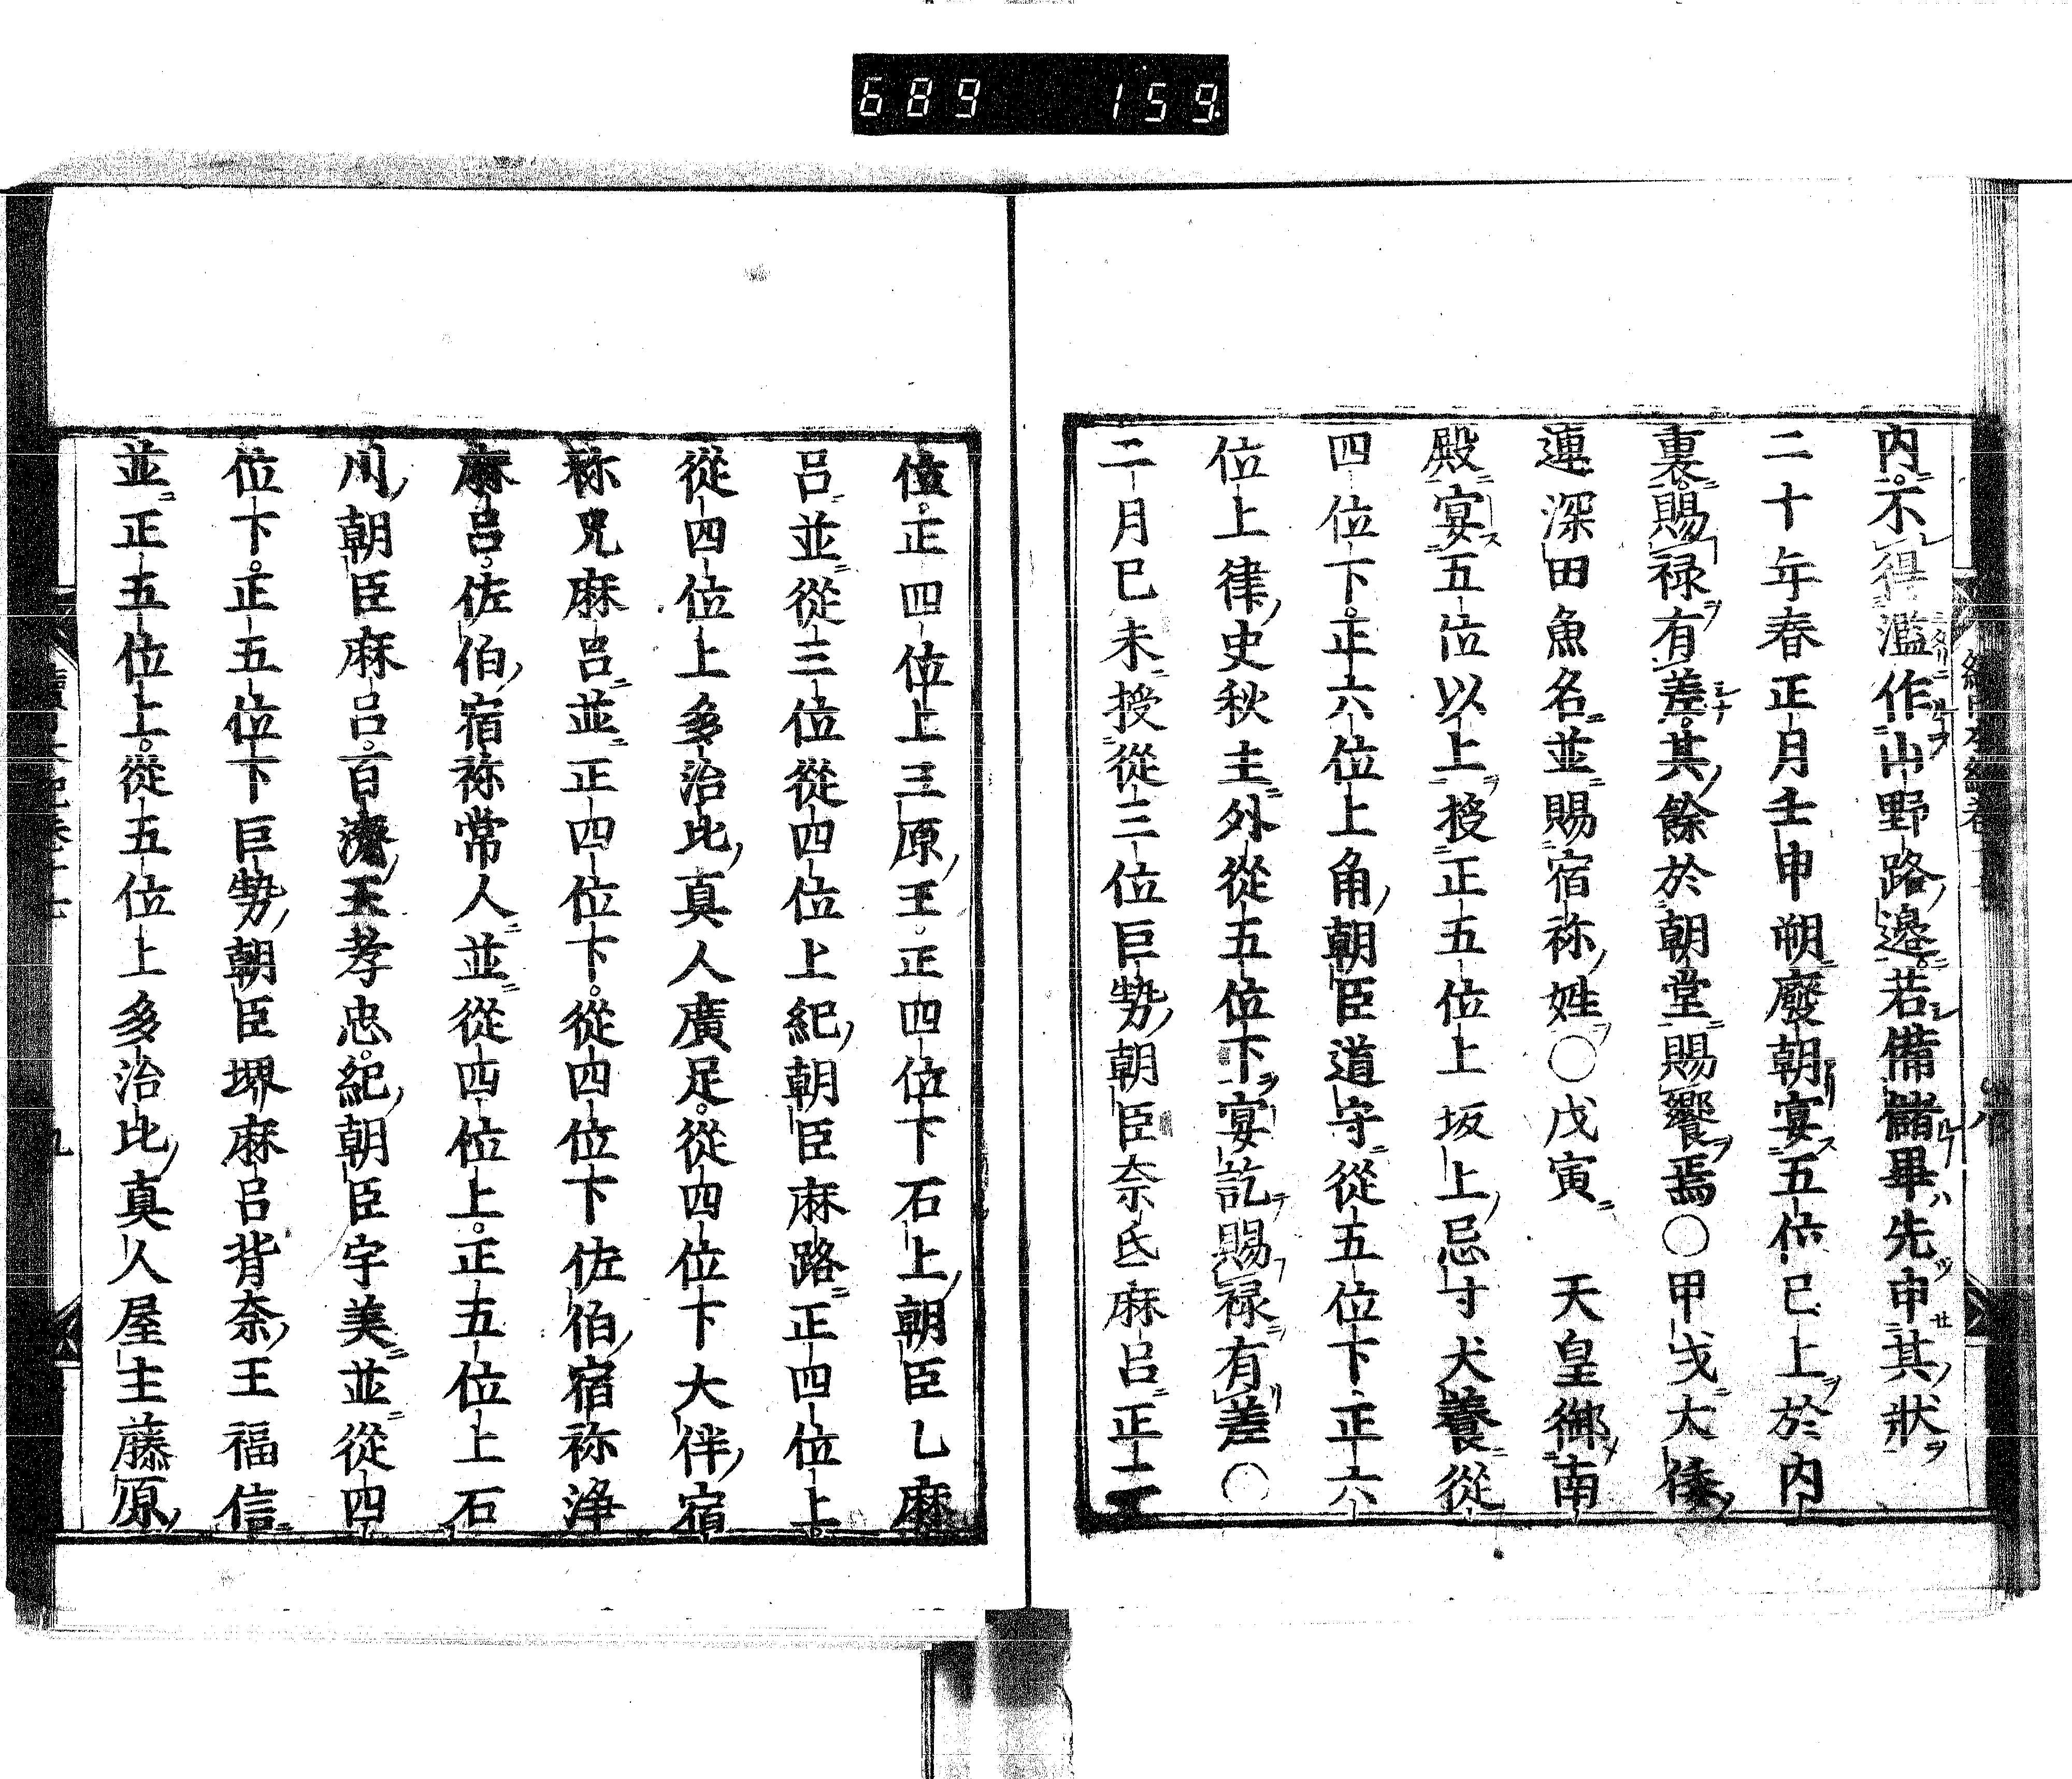 689 159
內不得濫作山野路邊若備儲畢先申其狀
二十年春正月壬申朔廢朝宴五位已上於內
裏賜祿有差其餘於朝堂賜饗焉〇甲戌大倭
連深田魚名並賜宿祢姓〇戊寅 天皇御南
殿宴五位以上授正五位上坂上忌寸犬養從
四位下正六位上角朝臣道守從五位下正六
位上律史秋主外從五位下宴訖賜祿有差〇
二月已未授從三位巨勢朝臣奈氐麻呂正三
位正四位上三原王正四位下石上朝臣乙麻
呂並從三位從四位上紀朝臣麻路正四位上
從四位上多治比真人廣足從四位下大伴宿
祢兄麻呂並正四位下從四位下佐伯宿祢淨
麻呂佐伯宿祢常人並從四位上正五位上石
川朝臣麻呂百濟王孝忠紀朝臣宇美並從四
位下正五位下巨勢朝臣堺麻呂背奈王福信
並正五位上從五位上多治比真人屋主藤原